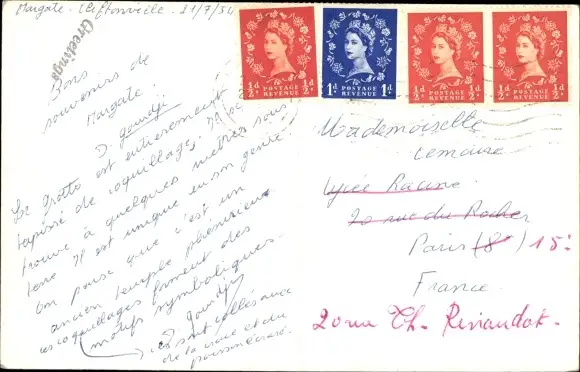 Margate. Cliftonville. 21/7/54
Greetings
Bons
souvenirs de
Margate.
D. gourdji
La Grotto est entièrement
tapissé de coquillages. Il se
trouve à quelques mètres sous
terre Il est unique en son genre.
On pense que c'est un
ancien temple phénicien
ces coquillages forment des
motifs symboliques.
D gourdji
ils sont collés avec
de la craie et du
poisson écrasé.
½d POSTAGE REVENUE ½d
1d POSTAGE REVENUE 1d
½d POSTAGE REVENUE ½d
½d POSTAGE REVENUE ½d
Mademoiselle
Lemoine
Lycée Racine
20 rue du Rocher
Paris (8) 15e
France
20 rue Th. Renaudot.